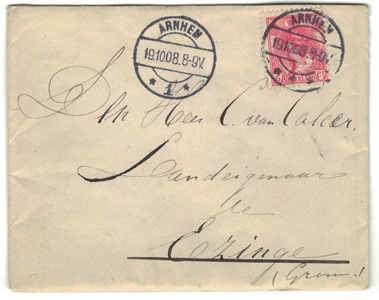 ARNHEM
19.10.08.8-9V.
1
ARNHEM
19.10.08.8-9V.
Den Heer C. van
Landeigenaar
te
Ezinge
(Gron.)